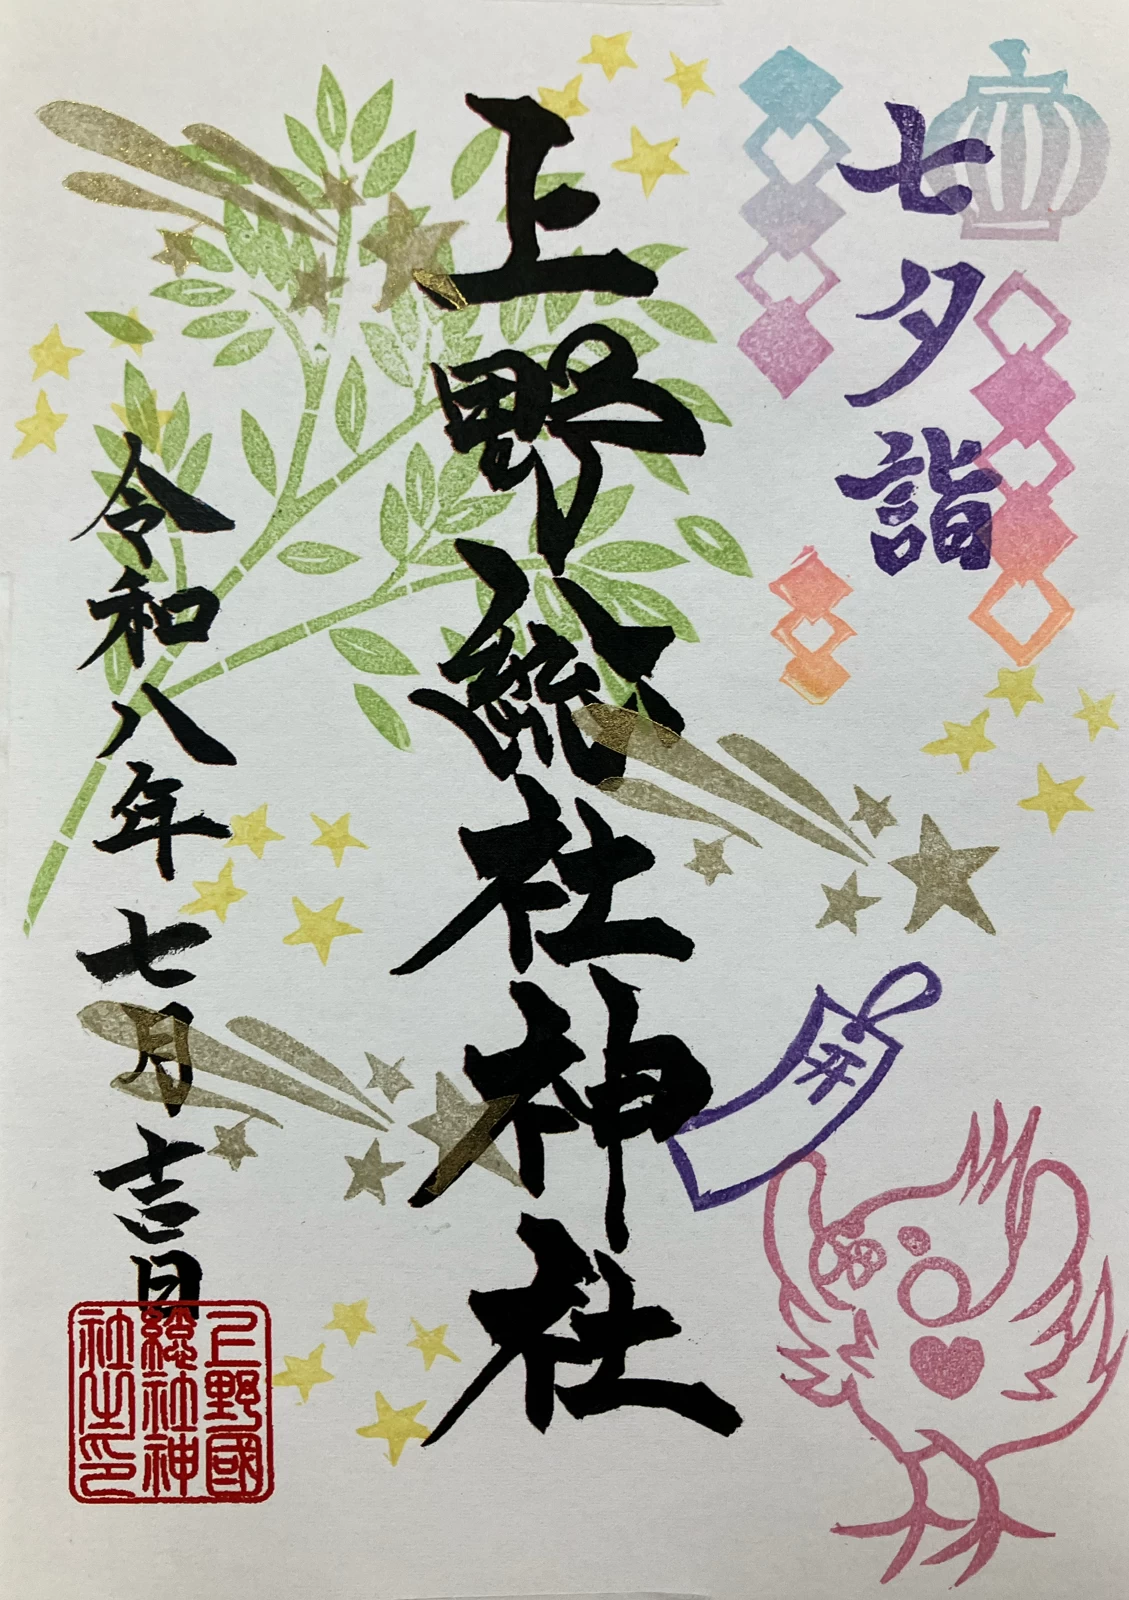 七夕詣
上野総社神社
令和八年七月吉日
上野國
総社神
社之印